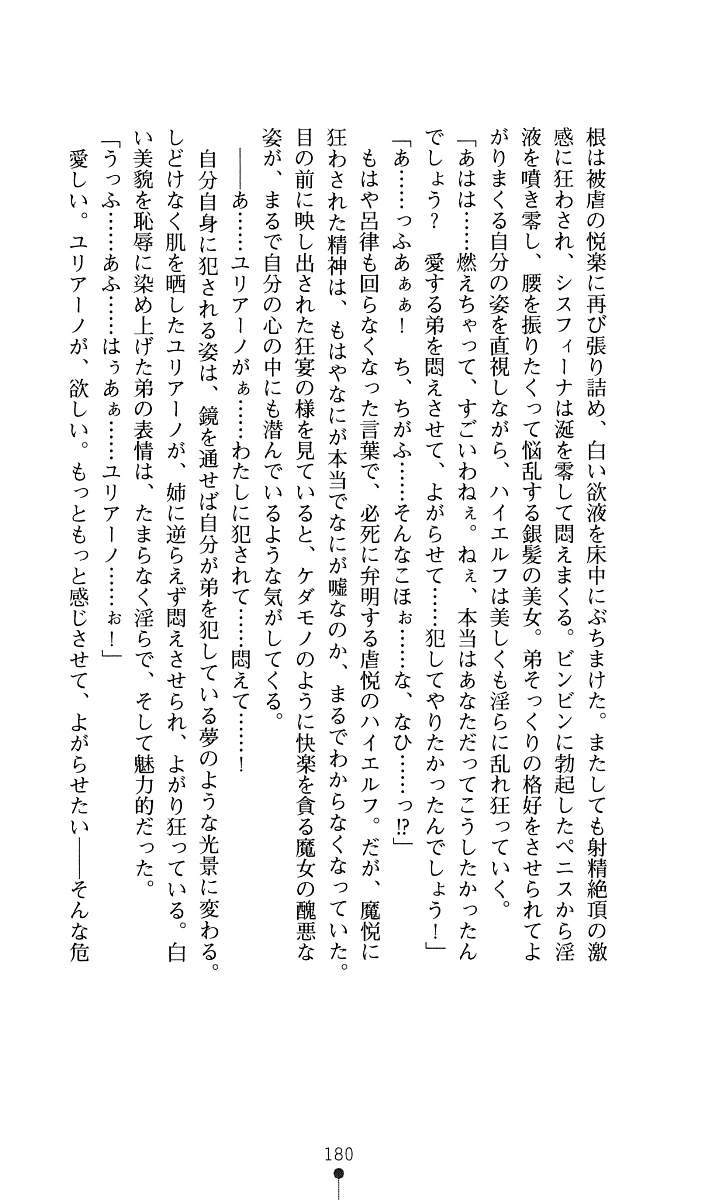 根は被虐の悦楽に再び張り詰め、白い欲液を床中にぶちまけた。またしても射精絶頂の激
感に狂わされ、シスフィーナは涎を零して悶えまくる。ビンビンに勃起したペニスから淫
液を噴き零し、腰を振りたくって悩乱する銀髪の美女。弟そっくりの格好をさせられてよ
がりまくる自分の姿を直視しながら、ハイエルフは美しくも淫らに乱れ狂っていく。
「あはは……燃えちゃって、すごいわねぇ。ねぇ、本当はあなただってこうしたかったん
でしょう？　愛する弟を悶えさせて、よがらせて……犯してやりたかったんでしょう！」
「あ……っふあぁぁ！　ち、ちがふ……そんなこほぉ……な、なひ……っ!?」
　もはや呂律も回らなくなった言葉で、必死に弁明する虐悦のハイエルフ。だが、魔悦に
狂わされた精神は、もはやなにが本当でなにが嘘なのか、まるでわからなくなっていた。
目の前に映し出された狂宴の様を見ていると、ケダモノのように快楽を貪る魔女の醜悪な
姿が、まるで自分の心の中にも潜んでいるような気がしてくる。
――あ……ユリアーノがぁ……わたしに犯されて……悶えて……！
　自分自身に犯される姿は、鏡を通せば自分が弟を犯している夢のような光景に変わる。
しどけなく肌を晒したユリアーノが、姉に逆らえず悶えさせられ、よがり狂っている。白
い美貌を恥辱に染め上げた弟の表情は、たまらなく淫らで、そして魅力的だった。
「うっふ……あふ……はぅあぁ……ユリアーノ……ぉ！」
　愛しい。ユリアーノが、欲しい。もっともっと感じさせて、よがらせたい――そんな危
180